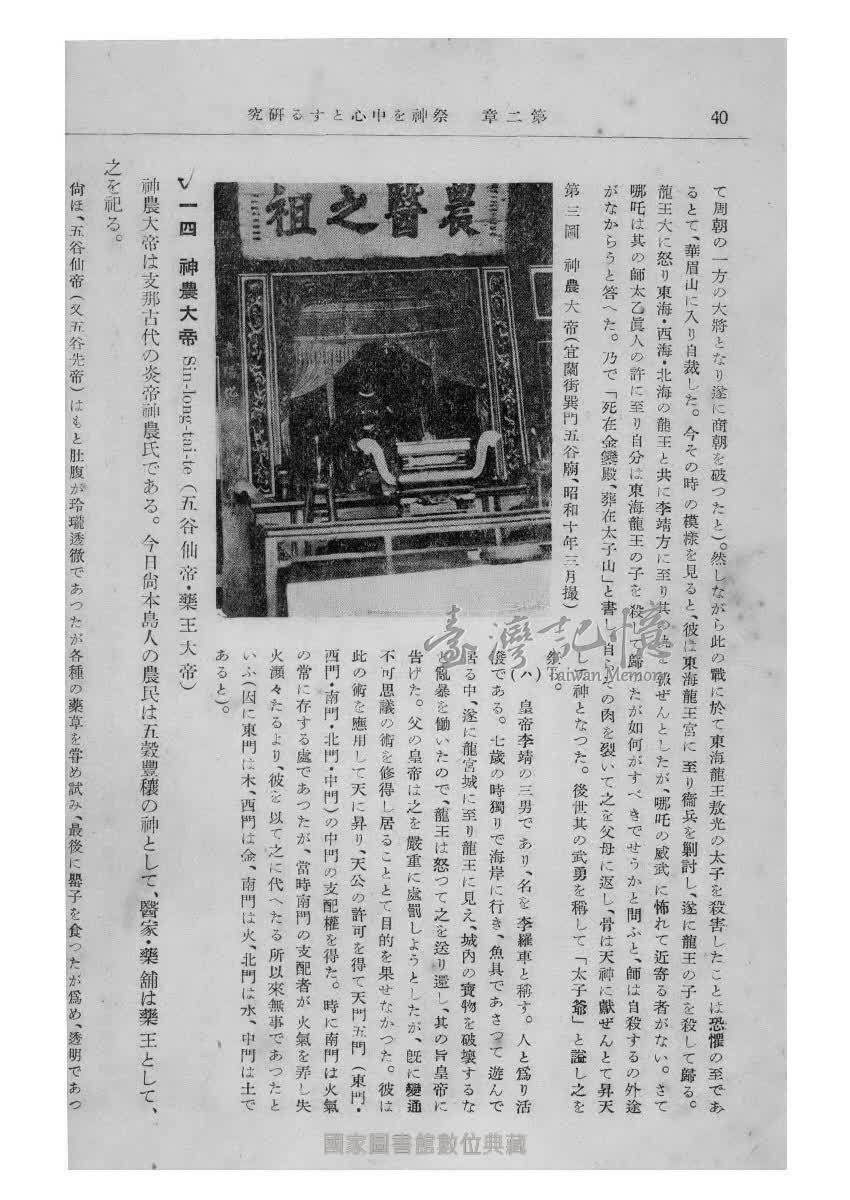 40
第二章　祭神を中心とする研究
て周朝の一方の大將となり遂に商朝を破つたと)。然しながら此の戰に於て東海龍王敖光の太子を殺害したことは恐懼の至であ
るとて、華眉山に入り自裁した。今その時の模樣を見ると、彼は東海龍王宮に至り衞兵を剿討し、遂に龍王の子を殺して歸る。
龍王大に怒り東海・西海・北海の龍王と共に李靖方に至り其の
を殺ぜんとしたが、哪吒の威武に怖れて近寄る者がない。さて
哪吒は其の師太乙眞人の許に至り自分は東海龍王の子を殺して歸つたが如何がすべきでせうかと問ふと、師は自殺するの外途
がなからうと答へた。乃で「死在金鑾殿、葬在太子山」と書し自らその肉を裂いて之を父母に返し、骨は天神に獻ぜんとて昇天
して神となつた。後世其の武勇を稱して「太子爺」と謚し之を
。
第三圖　神農大帝(宜蘭街巽門五谷廟、昭和十年三月撮)
農醫之祖
(ハ)　皇帝李靖の三男であり、名を李羅車と稱す。人と爲り活
潑である。七歲の時獨りで海岸に行き、魚具であさつて遊んで
居る中、遂に龍宮城に至り龍王に見え、城內の寶物を破壞するな
ど亂暴を働いたので、龍王は怒つて之を送り還し、其の旨皇帝に
告げた。父の皇帝は之を嚴重に處罰しようとしたが、旣に變通
不可思議の術を修得し居ることとて目的を果せなかつた。彼は
此の術を應用して天に昇り、天公の許可を得て天門五門(東門・
西門・南門・北門・中門)の中門の支配權を得た。時に南門は火氣
の常に存する處であつたが、當時南門の支配者が火氣を弄し失
火瀕々たるより、彼を以て之に代へたる所以來無事であつたと
いふ(因に東門は木、西門は金、南門は火、北門は水、中門は土で
あると)。
一四　神農大帝 Sin-long-tai-te (五谷仙帝・藥王大帝)
神農大帝は支那古代の炎帝神農氏である。今日尙本島人の農民は五穀豐穰の神として、醫家・藥舖は藥王として、
之を祀る。
尙ほ、五谷仙帝(又五谷先帝)はもと肚腹が玲瓏透徹であつたが各種の藥草を嘗め試み、最後に罌子を食つたが爲め、透明であつ
臺灣記憶
Taiwan Memory
國家圖書館數位典藏